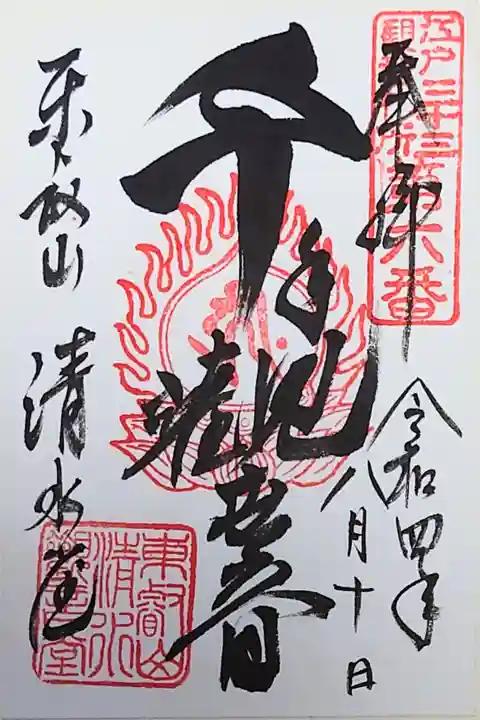 奉拝
令和四年
八月十日
千手観世音
東叡山
清水堂
江戸三十三ヶ所
第六番
東叡山
清水
観音堂